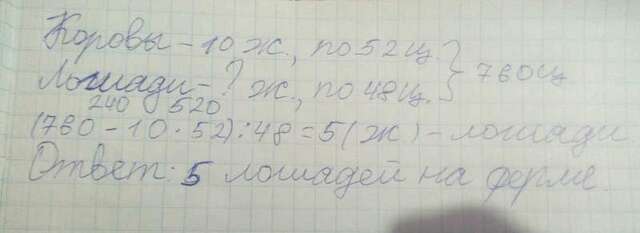 Коровы – 10 ж., по 52 ц. } 760 ц
Лошади – ? ж., по 48 ц.
240 520
(760 – 10 · 52) : 48 = 5 (ж) – лошади.
Ответ: 5 лошадей на ферме.